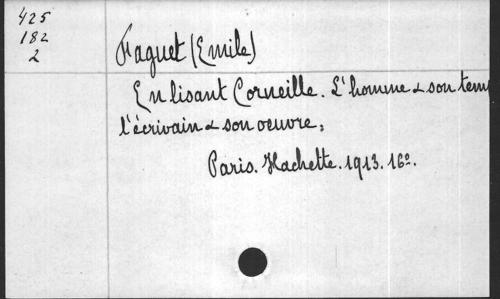 425
182
2
Faguet (Emile)
En lisant Corneille. L'homme & son tem
l'écrivain & son oeuvre,
Paris. Hachette. 1913. 16º.